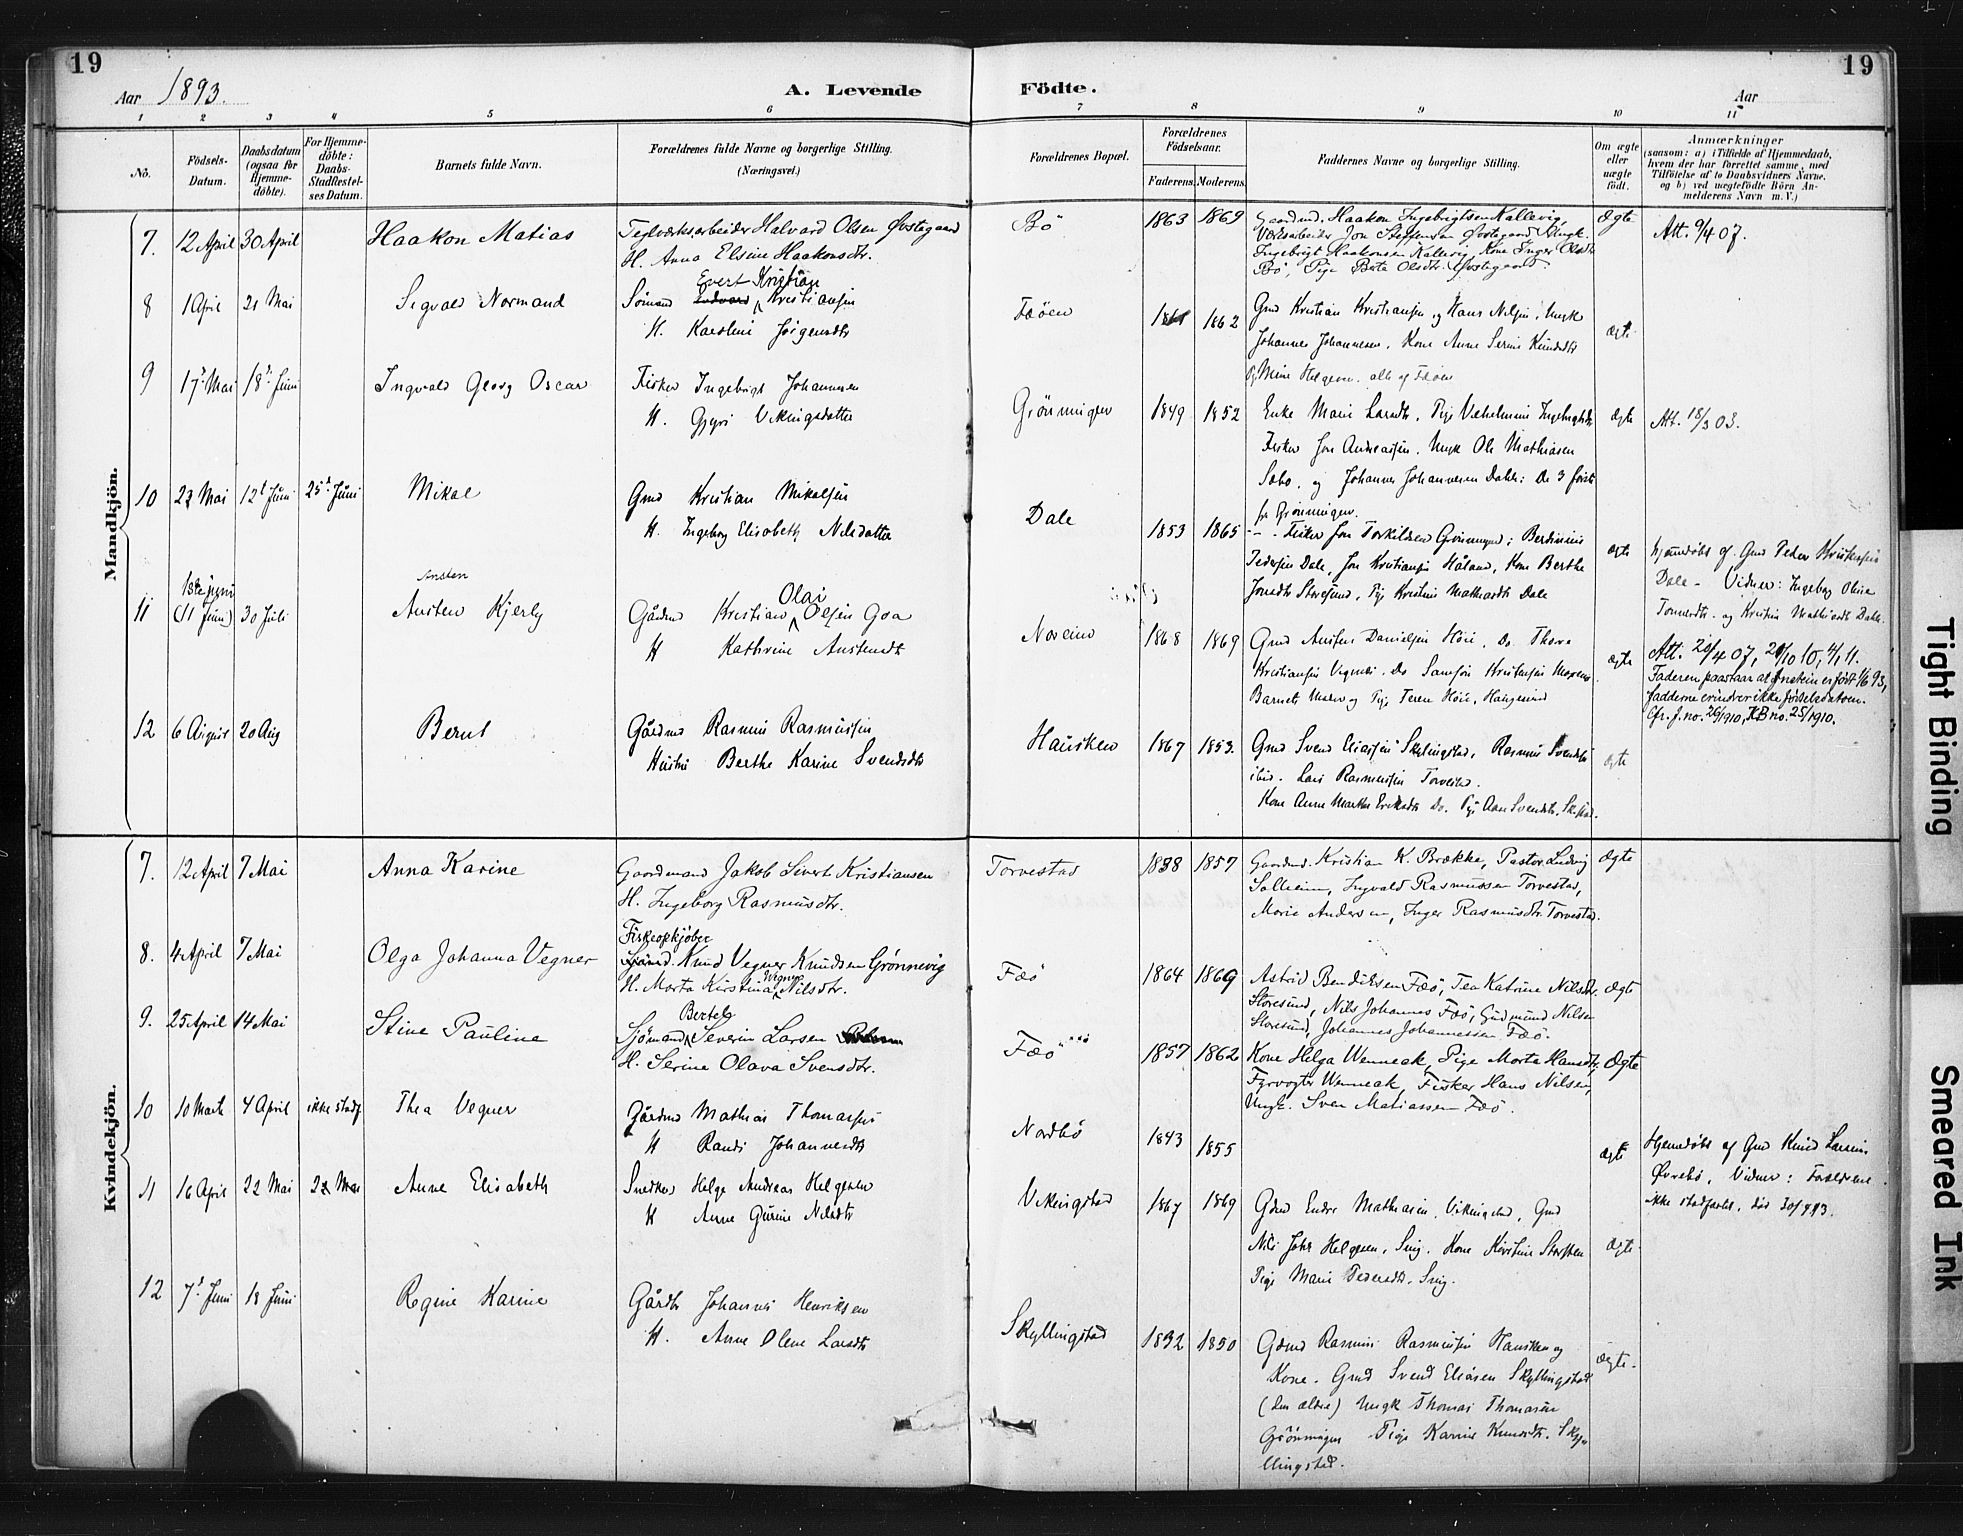 19
19
Aar 1893.
A. Levende
Födte.
Aar
1 2 3 4 5 6 7 8 9 10 11
No.
Födsels-Datum.
Daabsdatum (ogsaa for Hjemme-döbte).
For Hjemme-döbte: Daabs-Stadfæstel-ses Datum.
Barnets fulde Navn.
Forældrenes fulde Navne og borgerlige Stilling.
(Næringsvei.)
Forældrenes Bopæl.
Forældrenes Födselsaar.
Faderens. Moderens.
Faddernes Navne og borgerlige Stilling.
Om ægte eller uægte födt.
Anmærkninger
(saasom: a) i Tilfælde af Hjemmedaab,
hvem der har forrettet samme, med
Tilföielse af to Daabsvidners Navne,
og b) ved uægtefödte Börn An-
melderens Navn m. V.)
Mandkjön.
7. 12 April 30 April Haakon Matias
Teglværksarbeider Halvard Olsen Østegaard
H. Anna Elsine Haakonsdtr.
Bö 1863 1869
Gaardmd. Haakon Ingebrigtsen Kallevig,
Værksarbeider Jon Steffensen Østegaard, Ungk.
Ingebrigt Haakonsen Kallevig, Kone Inger Olsdtr.
Bö, Pige Berta Olsdtr. Østegaard.
Ægte
Att. 9/4 07.
8 1 April 21 Mai Sigvald Normand
Evert Kristian
Sömand Kristiansen
H. Karoline Jörgensdtr
Fæöen 1862
Gmd Kristian Kristiansen og Hans Nilsen, Ungk
Johannes Johannesen. Kone Anne Serine Knudsdtr
og Mine Helgesen. alle af Fæöen
Ægte
9 17de Mai 18de Juni Ingvald Georg Oscar
Fisker Ingebrigt Johannesen
H. Gyri Vikingsdatter
Grönningen 1849 1852
Enke Marie Larsdtr, Pige Vilhelmine Ingebrigtsdtr
Fisker Jon Andreassen. Ungk Ole Mathiasen
Sæbö. og Johannes Johannesen Dahle: De 3 förste
fr Grönningen.
Ægte
Att. 18/3 03.
10 23 Mai 12te Juni 25de Juni Mikal
Gmd Kristian Mikalsen
H. Ingeborg Elisabeth Nilsdatter
Dale 1853 1865
Fisker Jon Torkildsen Grönningen; Berdinius
Pedersen Dale, Jon Kristiansen Håland, Kone Berthe
Jonsdtr Storesund, Pige Kristine Mathiasdtr Dale
Ægte
hjemmedöbt af Gmd Peder Kristensen
Dale - Vidner: Ingeborg Oline
Tormodsdtr. og Kristine Mathiasdtr Dahle.
11 1ste juni (11 Juni) 30 Juli
Ansten
Austen Kjerly
Olai
Gårdmd Kristian Olsen Goa
H Kathrine Austensdtr
Noreim 1868 1869
Gmd Austen Danielsen Höie, Do. Thore
Kristiansen Vigsnes. Do Samson Kristensen Norheim
Barnets Moder og Pige Teren Höie, Haugesund
Ægte
Att. 20/4 07, 21/10 10, 4/1 11.
Faderen paastaar at Anstein er født 1/6 93,
fadderne erindrer ikke fødselsdatoen.
Cfr. J. no. 26/1910, KB no. 25/1910.
12 6 August 20 Aug Bernt
Gårdmd Rasmus Rasmussen
Hustru Berthe Karine Svendsdtr
Hausken 1867 1853.
Gmd Svend Eliassen Skyllingstad, Rasmus Svendsen
ibid. Lars Rasmussen Torvestad.
Kone Anne Marthe Eriksdtr Do. Pige Ane Svendsdtr, Skyllstad.
Ægte
Kvindekjön.
7. 12 April 7 Mai Anna Karine
Gaardmand Jakob Sivert Kristiansen
H. Ingeborg Rasmusdtr.
Torvestad 1838 1857
Gaardmd. Kristian K. Brække, Pastor Ludvig
Solheim, Ingvald Rasmussen Torvestad,
Marie Andersen, Inger Rasmusdtr. Torvestad.
Ægte
8. 4 April 7 Mai Olga Johanna Vegner
Fiskeopkjøber
Knud Vegner Knudsen Grønnevig
H. Marta Kirstina Vegner Nilsdtr.
Fæö 1864 1869
Astrid Bendiksen Fæö, Tea Katrine Nilsdtr.
Storesund, Nils Johannes Fæö, Gudmund Nilsen
Storesund, Johannes Johannessen Fæö.
Ægte
9. 25 April 14 Mai Stine Pauline
Bertel
Sjömand Severin Larsen
H. Serine Olava Svensdtr.
Fæö 1857 1862
Kone Helga Wenneak, Pige Marta Hansdtr,
Fyrvogter Wenneak, Fisker Hans Nilsen,
Ungk. Sven Matiassen Fæö.
Ægte
10 10 Marts 4 April ikke stadf Thea Vegner
Gårdmd Mathias Thomassen
H Randi Johannesdtr
Nordbö 1843 1855
Ægte
Hjemmedöbt af Gmd Knud Larsen
Øvrebö, Vidner: Forældrene
ikke stadfæstet. död 30/4 93.
11 16 April 22 Mai 22 Mai Anne Elisabeth
Snedker Helge Andreas Helgesen
H Anne Gurine Nilsdtr
Vikingstad 1867 1869
Gdmd Endre Mathiasen Vikingstad, Gmd
Nils Johs Helgesen, Snig. Kone Kirstine Storsteen
Pige Marie Pedersdtr. Snig.
Ægte
12 7de Juni 18 Juni Regine Karine
Gårdbr Johannes Henriksen
H. Anne Olene Larsdtr
Skyllingstad 1832 1850
Gdmd Rasmus Rasmussen Hausken og
Kone. Gmd Svend Eliasen Skyllingstad
(den ældre) Ungk Thomas Thomasen
Grönningen Pige Karine Knudsdtr. Sky-
llingstad.
Ægte.
Tight Binding
Smeared Ink